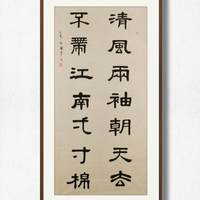 清風兩袖朝天去
不帶江南弌寸棉